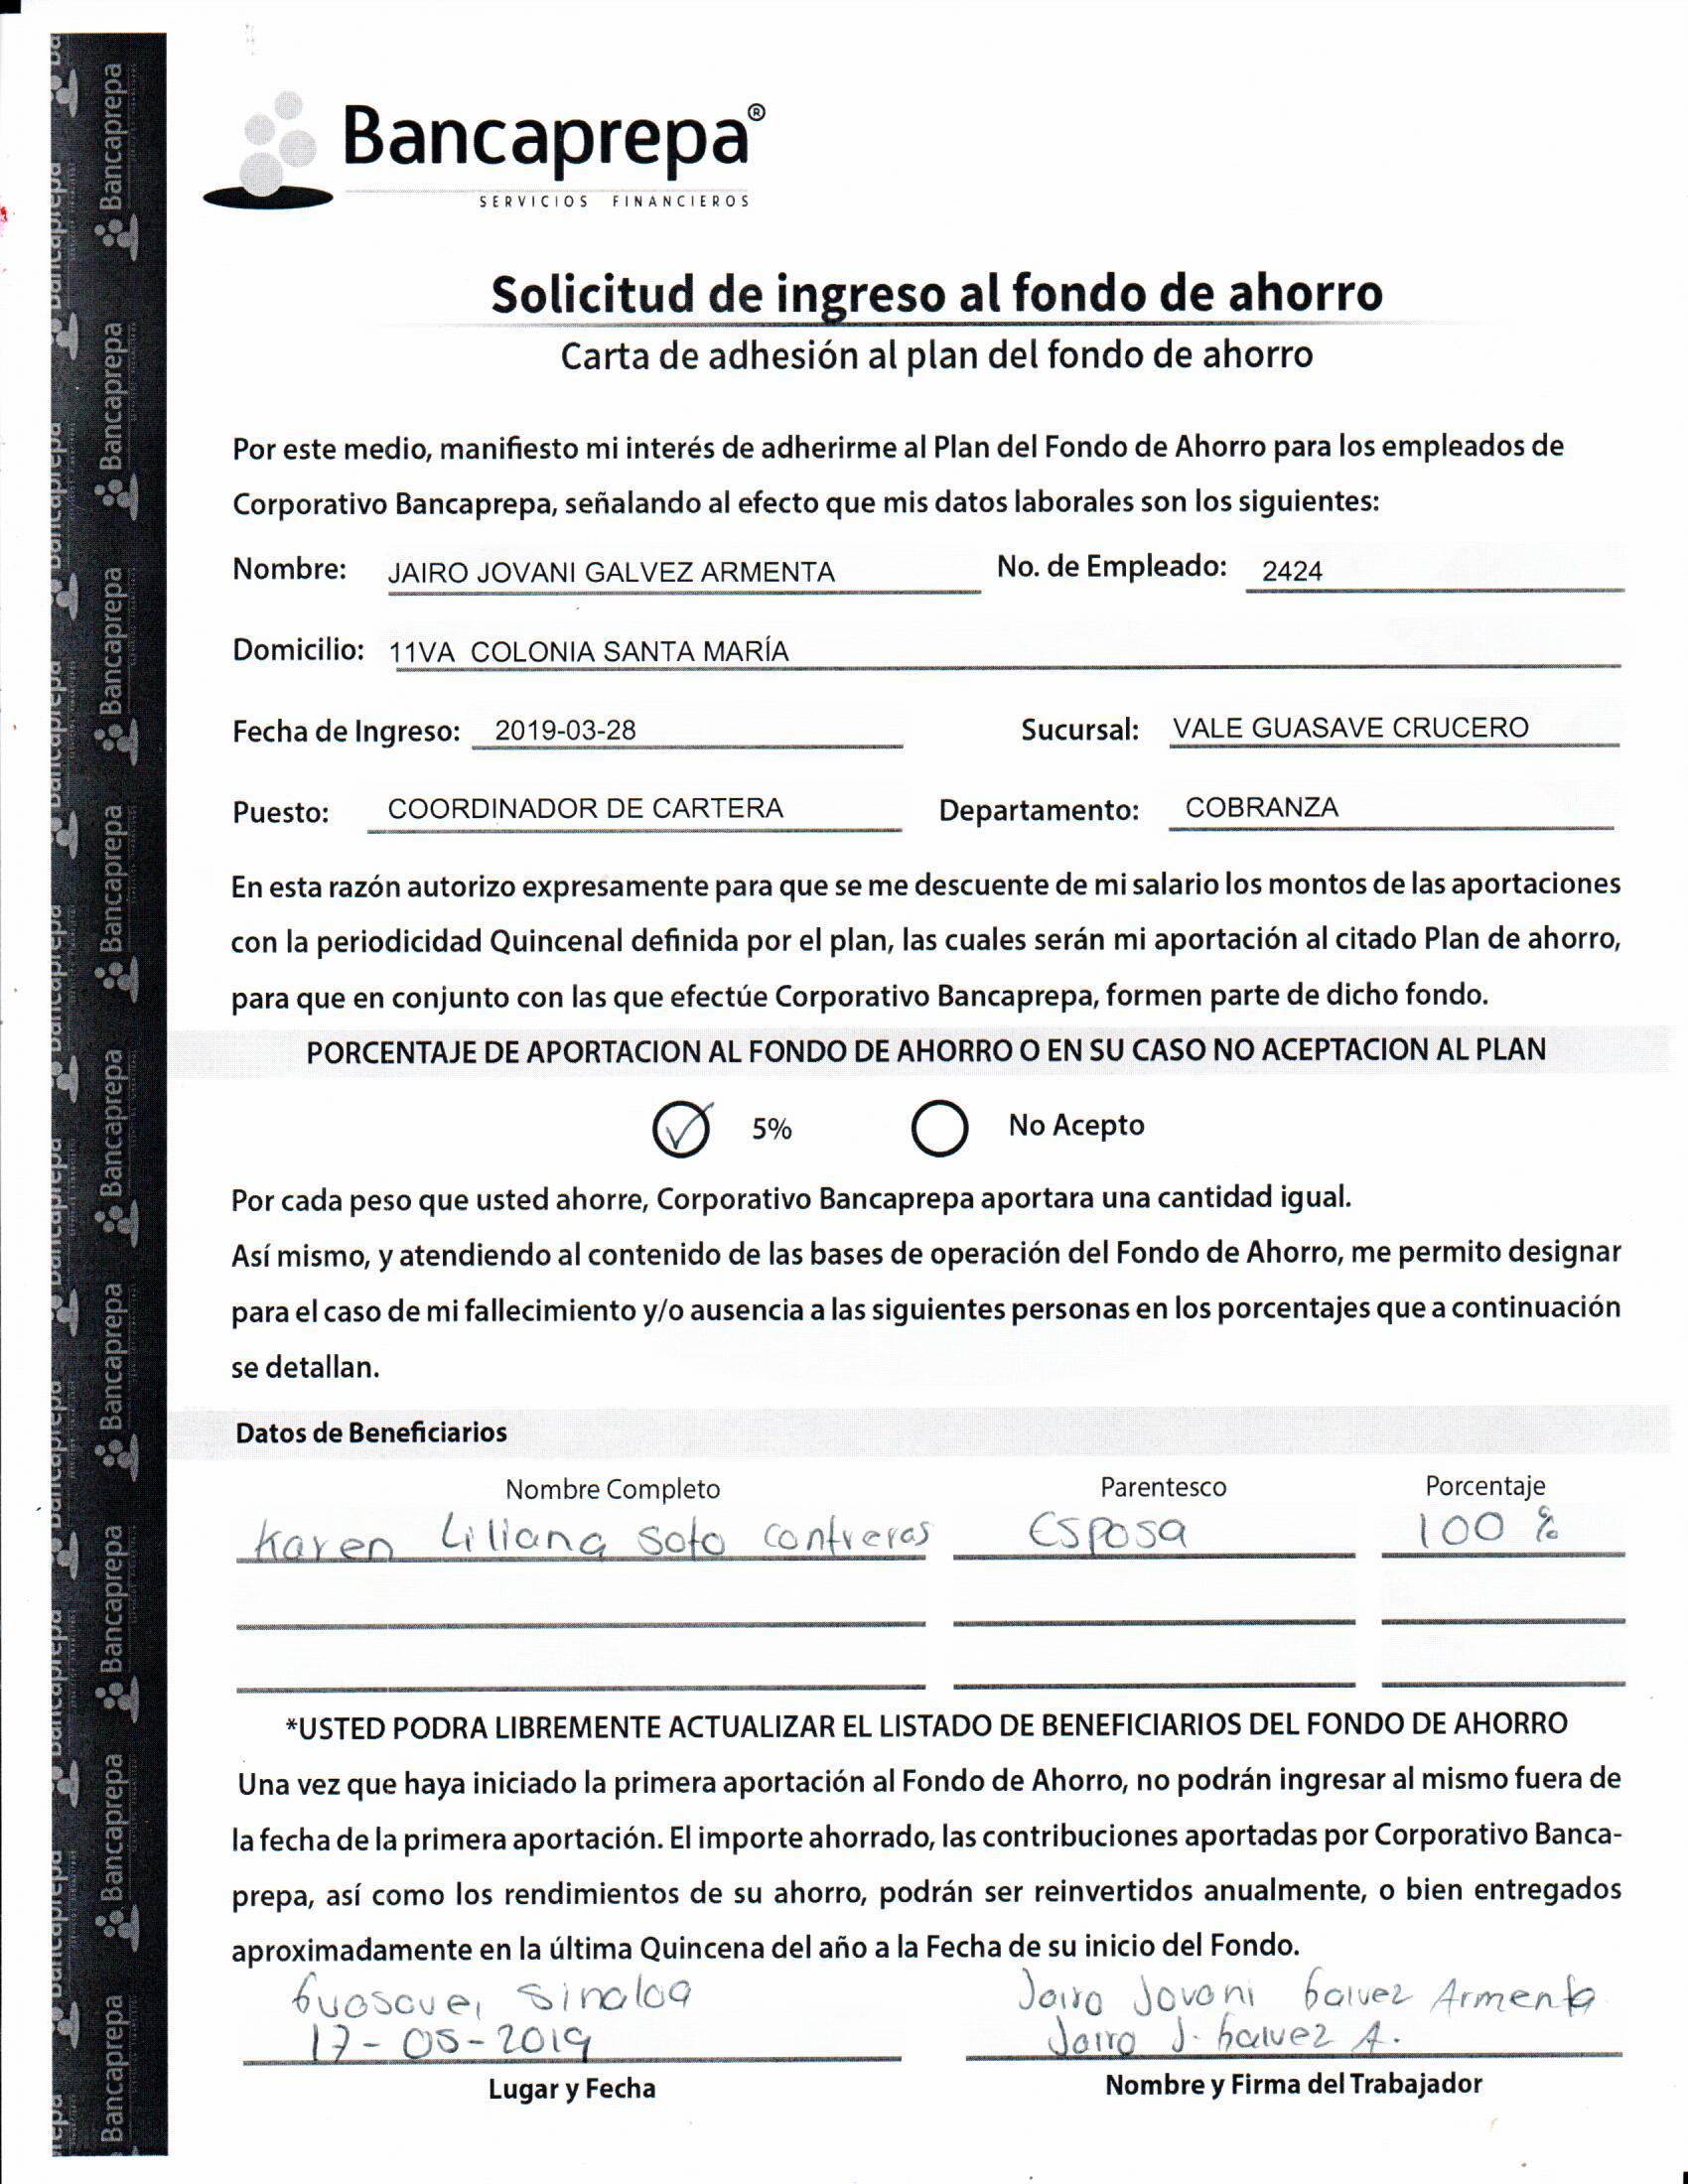 Bancaprepa®
SERVICIOS FINANCIEROS
Solicitud de ingreso al fondo de ahorro
Carta de adhesión al plan del fondo de ahorro
Por este medio, manifiesto mi interés de adherirme al Plan del Fondo de Ahorro para los empleados de
Corporativo Bancaprepa, señalando al efecto que mis datos laborales son los siguientes:
Nombre: JAIRO JOVANI GALVEZ ARMENTA No. de Empleado: 2424
Domicilio: 11VA COLONIA SANTA MARÍA
Fecha de Ingreso: 2019-03-28 Sucursal: VALE GUASAVE CRUCERO
Puesto: COORDINADOR DE CARTERA Departamento: COBRANZA
En esta razón autorizo expresamente para que se me descuente de mi salario los montos de las aportaciones
con la periodicidad Quincenal definida por el plan, las cuales serán mi aportación al citado Plan de ahorro,
para que en conjunto con las que efectúe Corporativo Bancaprepa, formen parte de dicho fondo.
PORCENTAJE DE APORTACION AL FONDO DE AHORRO O EN SU CASO NO ACEPTACION AL PLAN
5% No Acepto
Por cada peso que usted ahorre, Corporativo Bancaprepa aportara una cantidad igual.
Así mismo, y atendiendo al contenido de las bases de operación del Fondo de Ahorro, me permito designar
para el caso de mi fallecimiento y/o ausencia a las siguientes personas en los porcentajes que a continuación
se detallan.
Datos de Beneficiarios
Nombre Completo Parentesco Porcentaje
Karen Liliana Soto Contreras Esposa 100 %
*USTED PODRA LIBREMENTE ACTUALIZAR EL LISTADO DE BENEFICIARIOS DEL FONDO DE AHORRO
Una vez que haya iniciado la primera aportación al Fondo de Ahorro, no podrán ingresar al mismo fuera de
la fecha de la primera aportación. El importe ahorrado, las contribuciones aportadas por Corporativo Banca-
prepa, así como los rendimientos de su ahorro, podrán ser reinvertidos anualmente, o bien entregados
aproximadamente en la última Quincena del año a la Fecha de su inicio del Fondo.
Guasave, Sinaloa Jairo Jovani Galvez Armenta
17-05-2019 Jairo J. Galvez A.
Lugar y Fecha Nombre y Firma del Trabajador